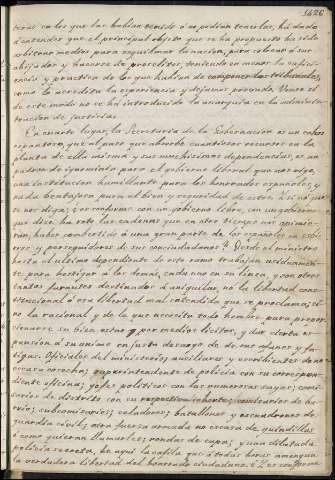 teras en los que las habian tenido ó no podian tenerlas, ha dado
á entender que el principal objeto que se ha propuesto ha sido
arbitrar medios para esquilmar la nacion, para colocar á sus
ahijados y hacerse de proselitos, teniendo en menos la sufici-
encia y practica de los que habian de componer los tribunales,
como lo acredita la esperiencia y dejamos provado. Vease si
de este modo no se ha introducido la anarquia en la adminis-
tracion de justicia.
En cuarto lugar, la Secretaria de la Gobernacion es un cahos
espantoso, que al paso que absorbe cuantiosos recursos en la
planta de ella misma y sus muchisimas dependencias, es un
padron de ignominia para el gobierno liberal que nos rige,
una institucion humillante para los honrados españoles, y
nada ventajosa para el bien y seguridad de estos. Si nó que
se nos diga; ¿es conforme con un gobierno libre, un gobierno
que dice ha roto las cadenas que en otro tiempo nos oprimie-
ron, haber convertido á una gran parte de los españoles en
y perseguidores de sus conciudadanos? Desde el ministro
hasta el ultimo dependiente de este ramo trabajan asiduamen-
te para hostigar á los demas, cada uno en su linea, y son otros
tantos destinados á aniquilar, no la libertad cons-
titucional ó esa libertad mal entendida que se proclama, sí-
no la racional y de la que necesita todo hombre para propor-
cionarse su bien estar, por medios licitos, y dar cierta es-
pansion á su animo en justo desaogo de sus afanes y fa-
tigas. Oficiales del ministerio, aucsiliares y escribientes
crasa cosecha; superintendente de policia con su correspon-
diente oficina; gefes politicos con las numerosas suyas; comi-
sarios de distrito con su respectiva cohorte; comisarios de ba-
rrios; subcomisarios; celadores; batallones y escuadrones de
guardia civil; otra fuerza armada no escasa de quindillas
ó como quieran llamarles; rondas de capa; y una dilatada
policia secreta, he aquí la que á todas horas amengua
la verdadera libertad del honrado ciudadano. ¿Es conforme